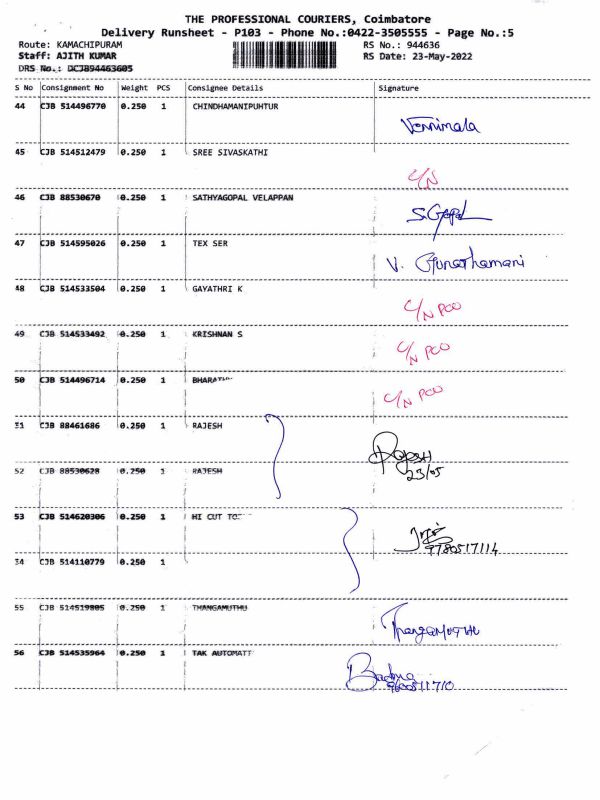 THE PROFESSIONAL COURIERS, Coimbatore
Delivery Runsheet - P103 - Phone No.:0422-3505555 - Page No.:5
Route: KAMACHIPURAM RS No.: 944636
Staff: AJITH KUMAR RS Date: 23-May-2022
DRS No.: DCJ894463605
S No Consignment No Weight PCS Consignee Details Signature
44 CJB 514496770 0.250 1 CHINDHAMANIPUHTUR
Vennimala
45 CJB 514512479 0.250 1 SREE SIVASKATHI
C/N
46 CJB 88530670 0.250 1 SATHYAGOPAL VELAPPAN
S.Gopal
47 CJB 514595026 0.250 1 TEX SER
V. Gunathamani
48 CJB 514533504 0.250 1 GAYATHRI K
C/N PCO
49 CJB 514533492 0.250 1 KRISHNAN S
C/N PCO
50 CJB 514496714 0.250 1
C/N PCO
51 CJB 88461686 0.250 1 RAJESH
Rajesh
52 CJB 88530628 0.250 1 RAJESH
23/05
53 CJB 514620306 0.250 1 HI CUT
9780517114
54 CJB 514110779 0.250 1
55 CJB 514519805 0.250 1 THANGAMUTHU
Thangamuthu
56 CJB 514535964 0.250 1 TAK AUTOMATI
9600511710